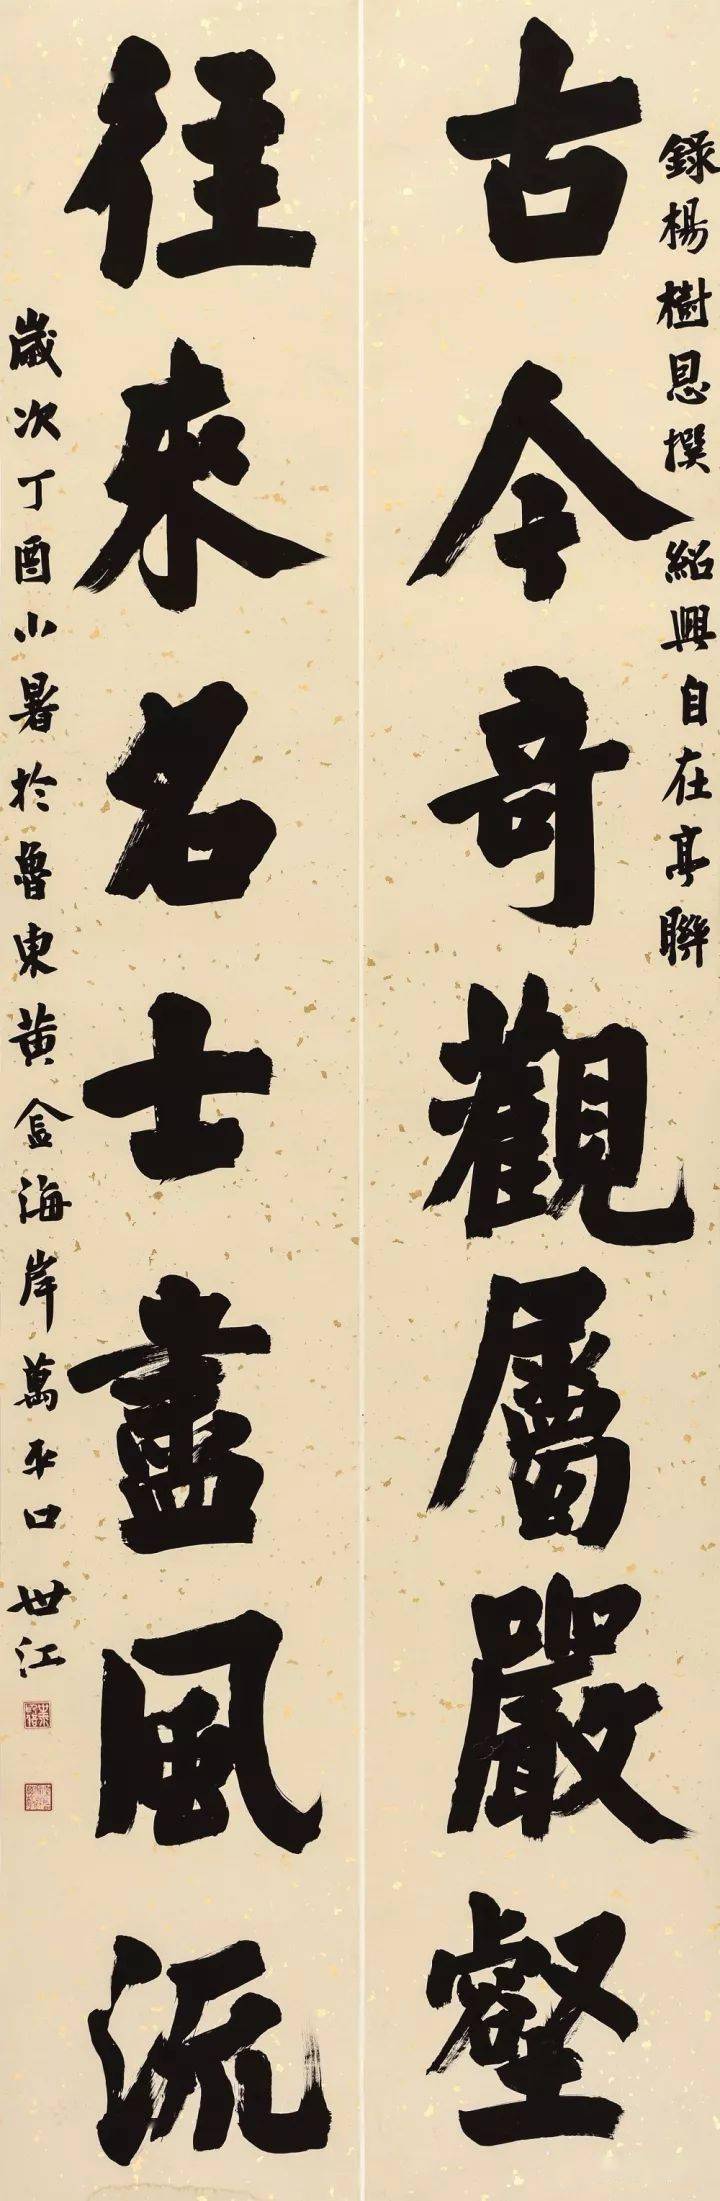 錄楊樹恩撰 紹興自在亭聯
古今奇觀屬嚴壑
往來名士盡風流
歲次丁酉小暑於魯東黃金海岸萬平口 世江